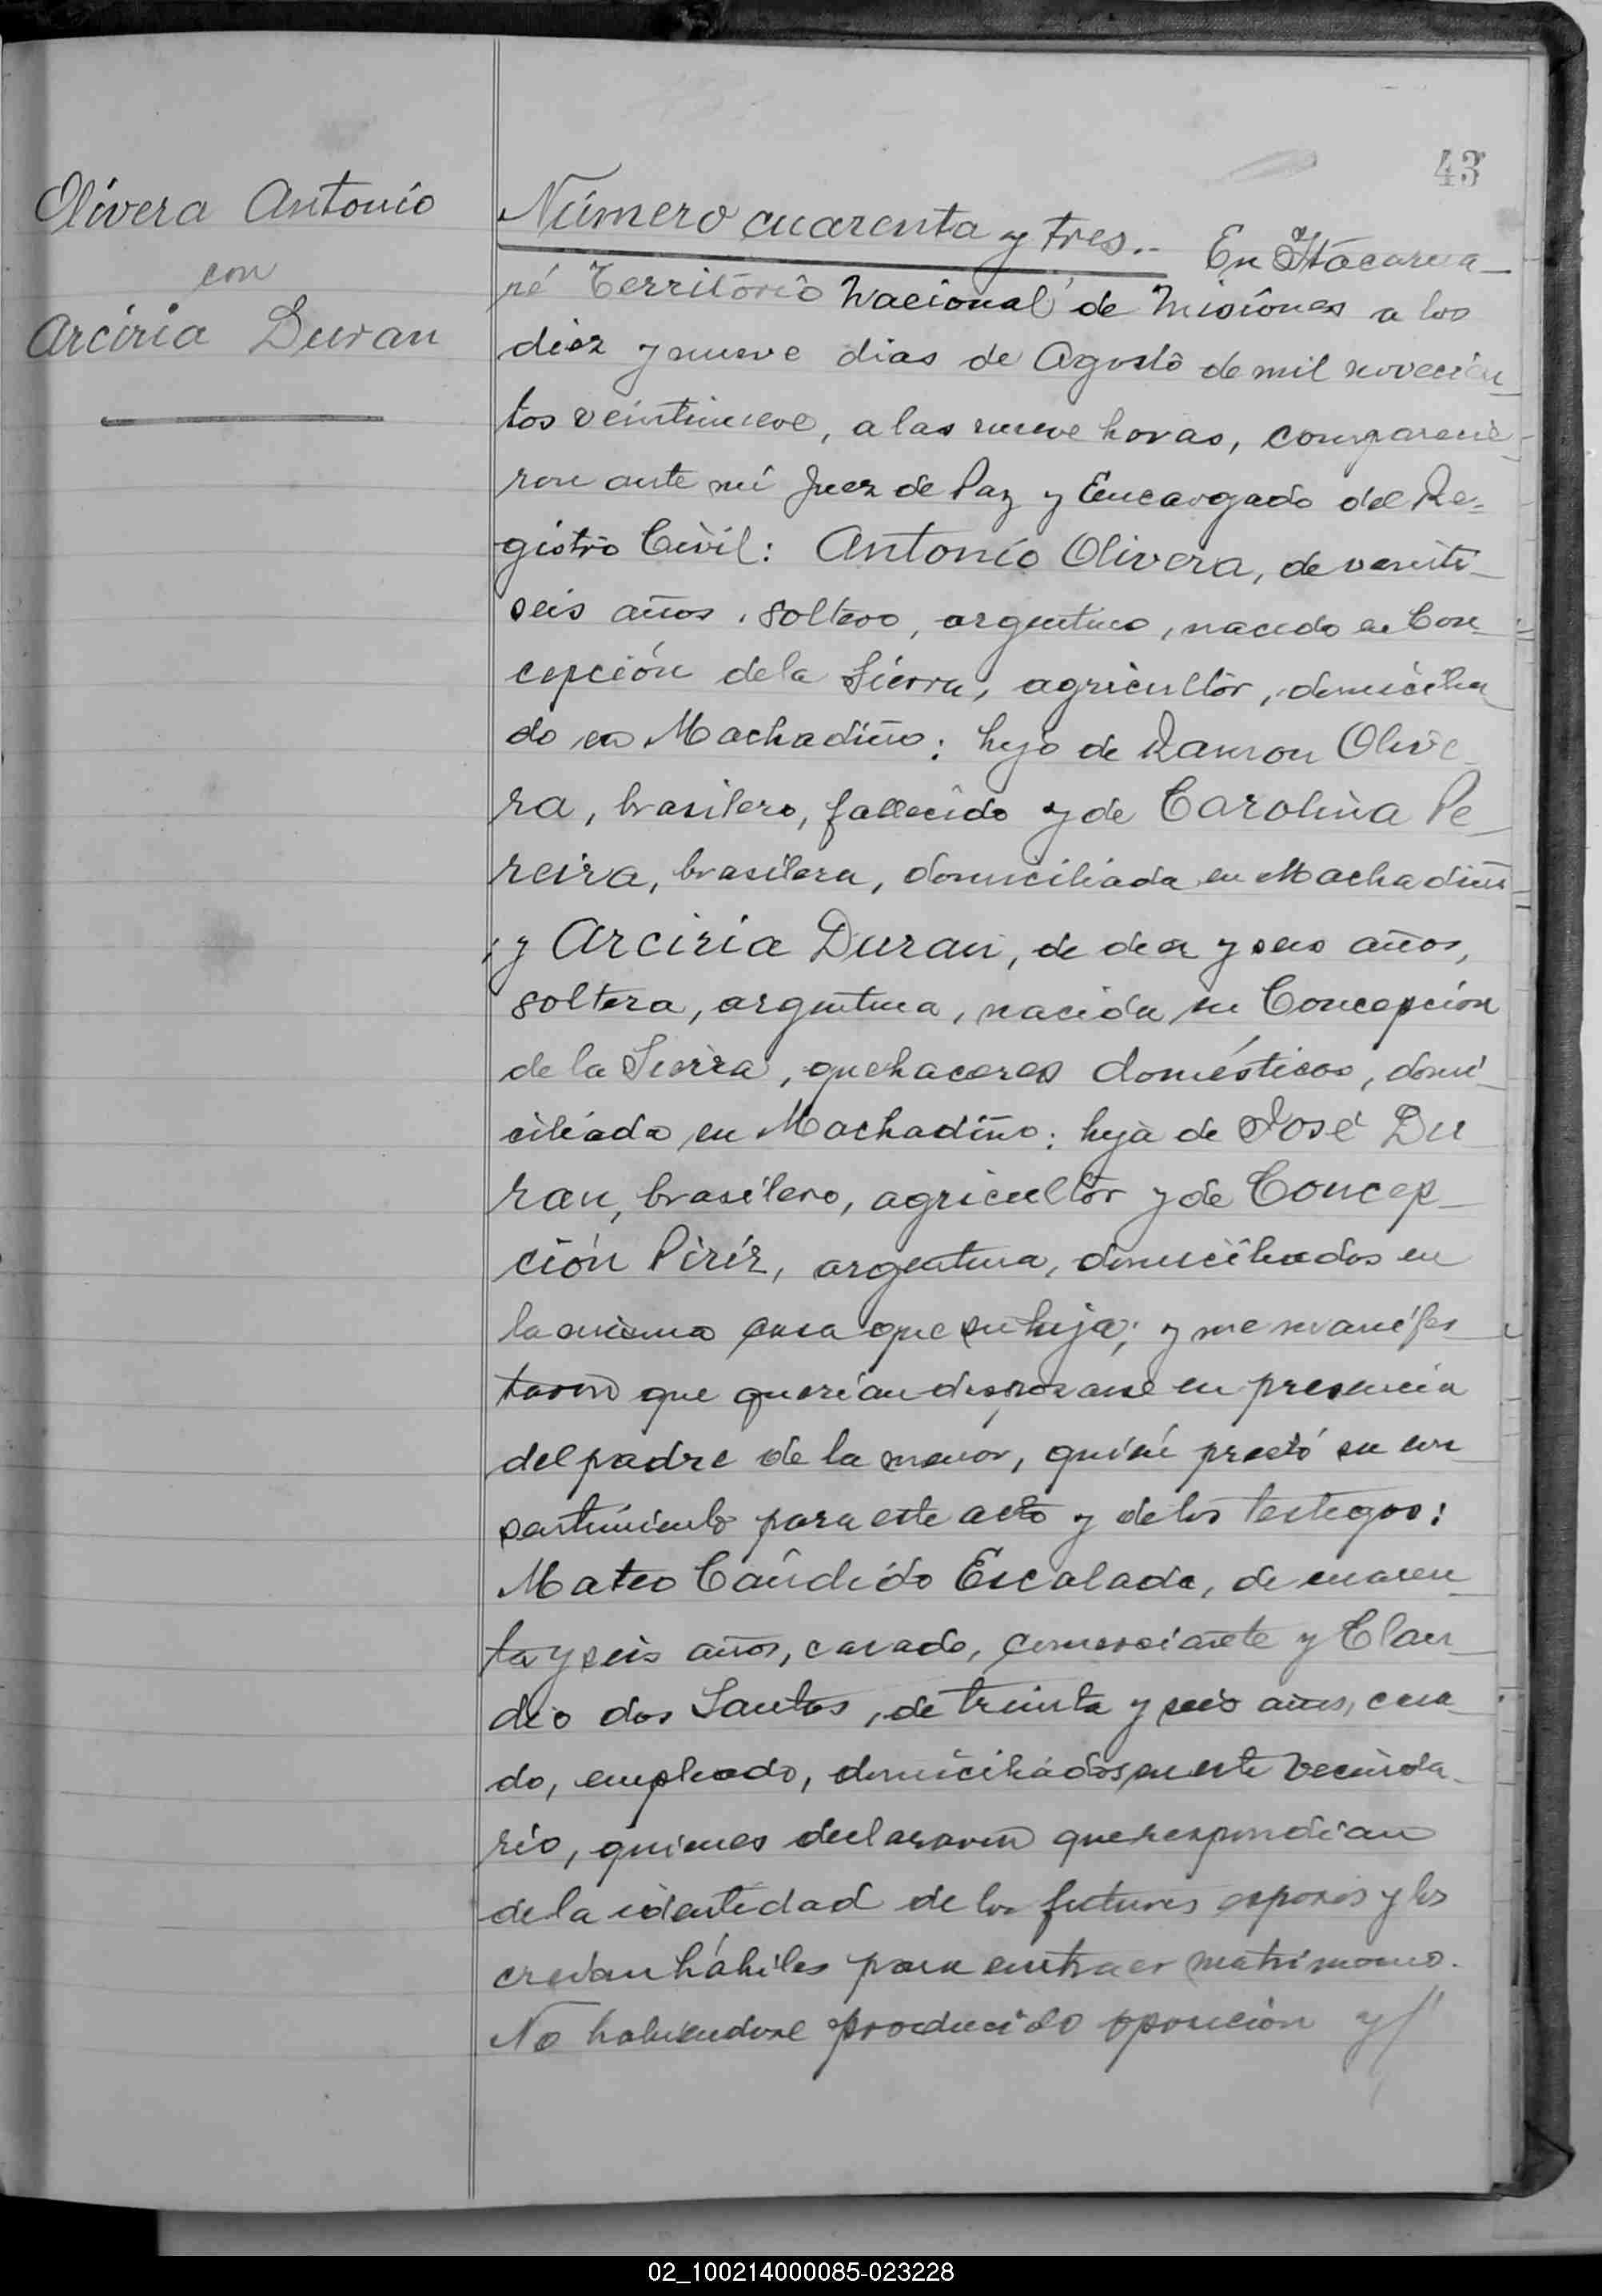 43
Olivera Antonio
con
Arciria Duran
Número cuarenta y tres.- En Itacarua_
ré Territorio Nacional de Misiones a los
diez y nueve dias de Agosto de mil novecien_
tos veintinueve, a las nueve horas, comparecie_
ron ante mí Juez de Paz y Encargado del Re_
gistro Civil: Antonio Olivera, de veinti_
seis años, soltero, argentino, nacido en Con_
cepción de la Sierra, agricultor, domicilia
do en Machadiño: hijo de Ramon Olive_
ra, brasilero, fallecido y de Carolina Pe_
reira, brasilera, domiciliada en Machadiño
; y Arciria Duran, de diez y seis años,
soltera, argentina, nacida en Concepción
de la Sierra, quehaceres domésticos, domi_
ciliada en Machadiño: hija de José Du
ran, brasilero, agricultor y de Concep_
ción Piríz, argentina, domiciliados en
la misma casa que su hija; y me manifes_
taron que querían desposarse en presencia
del padre de la menor, quien prestó su con_
sentimiento para este acto y de los testigos:
Mateo Cándido Escalada, de cuaren_
ta y seis años, casado, comerciante y Clau_
dio dos Santos, de treinta y seis años, casa_
do, empleado, domiciliados en este vecinda_
rio, quienes declararon que respondían
de la identidad de los futuros esposos y los
creían hábiles para contraer matrimonio.
No habiendose producido oposición y//
02_100214000085-023228